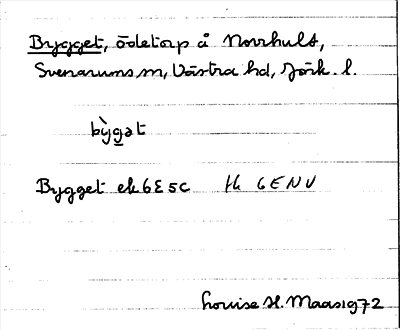 Bygget, ödetorp å Norrhult,
Svenarums sn, Västra hd, Jönk. l.
bỳgat
Bygget ek 6E5c tk 6ENV
Louise H. Maas 1972